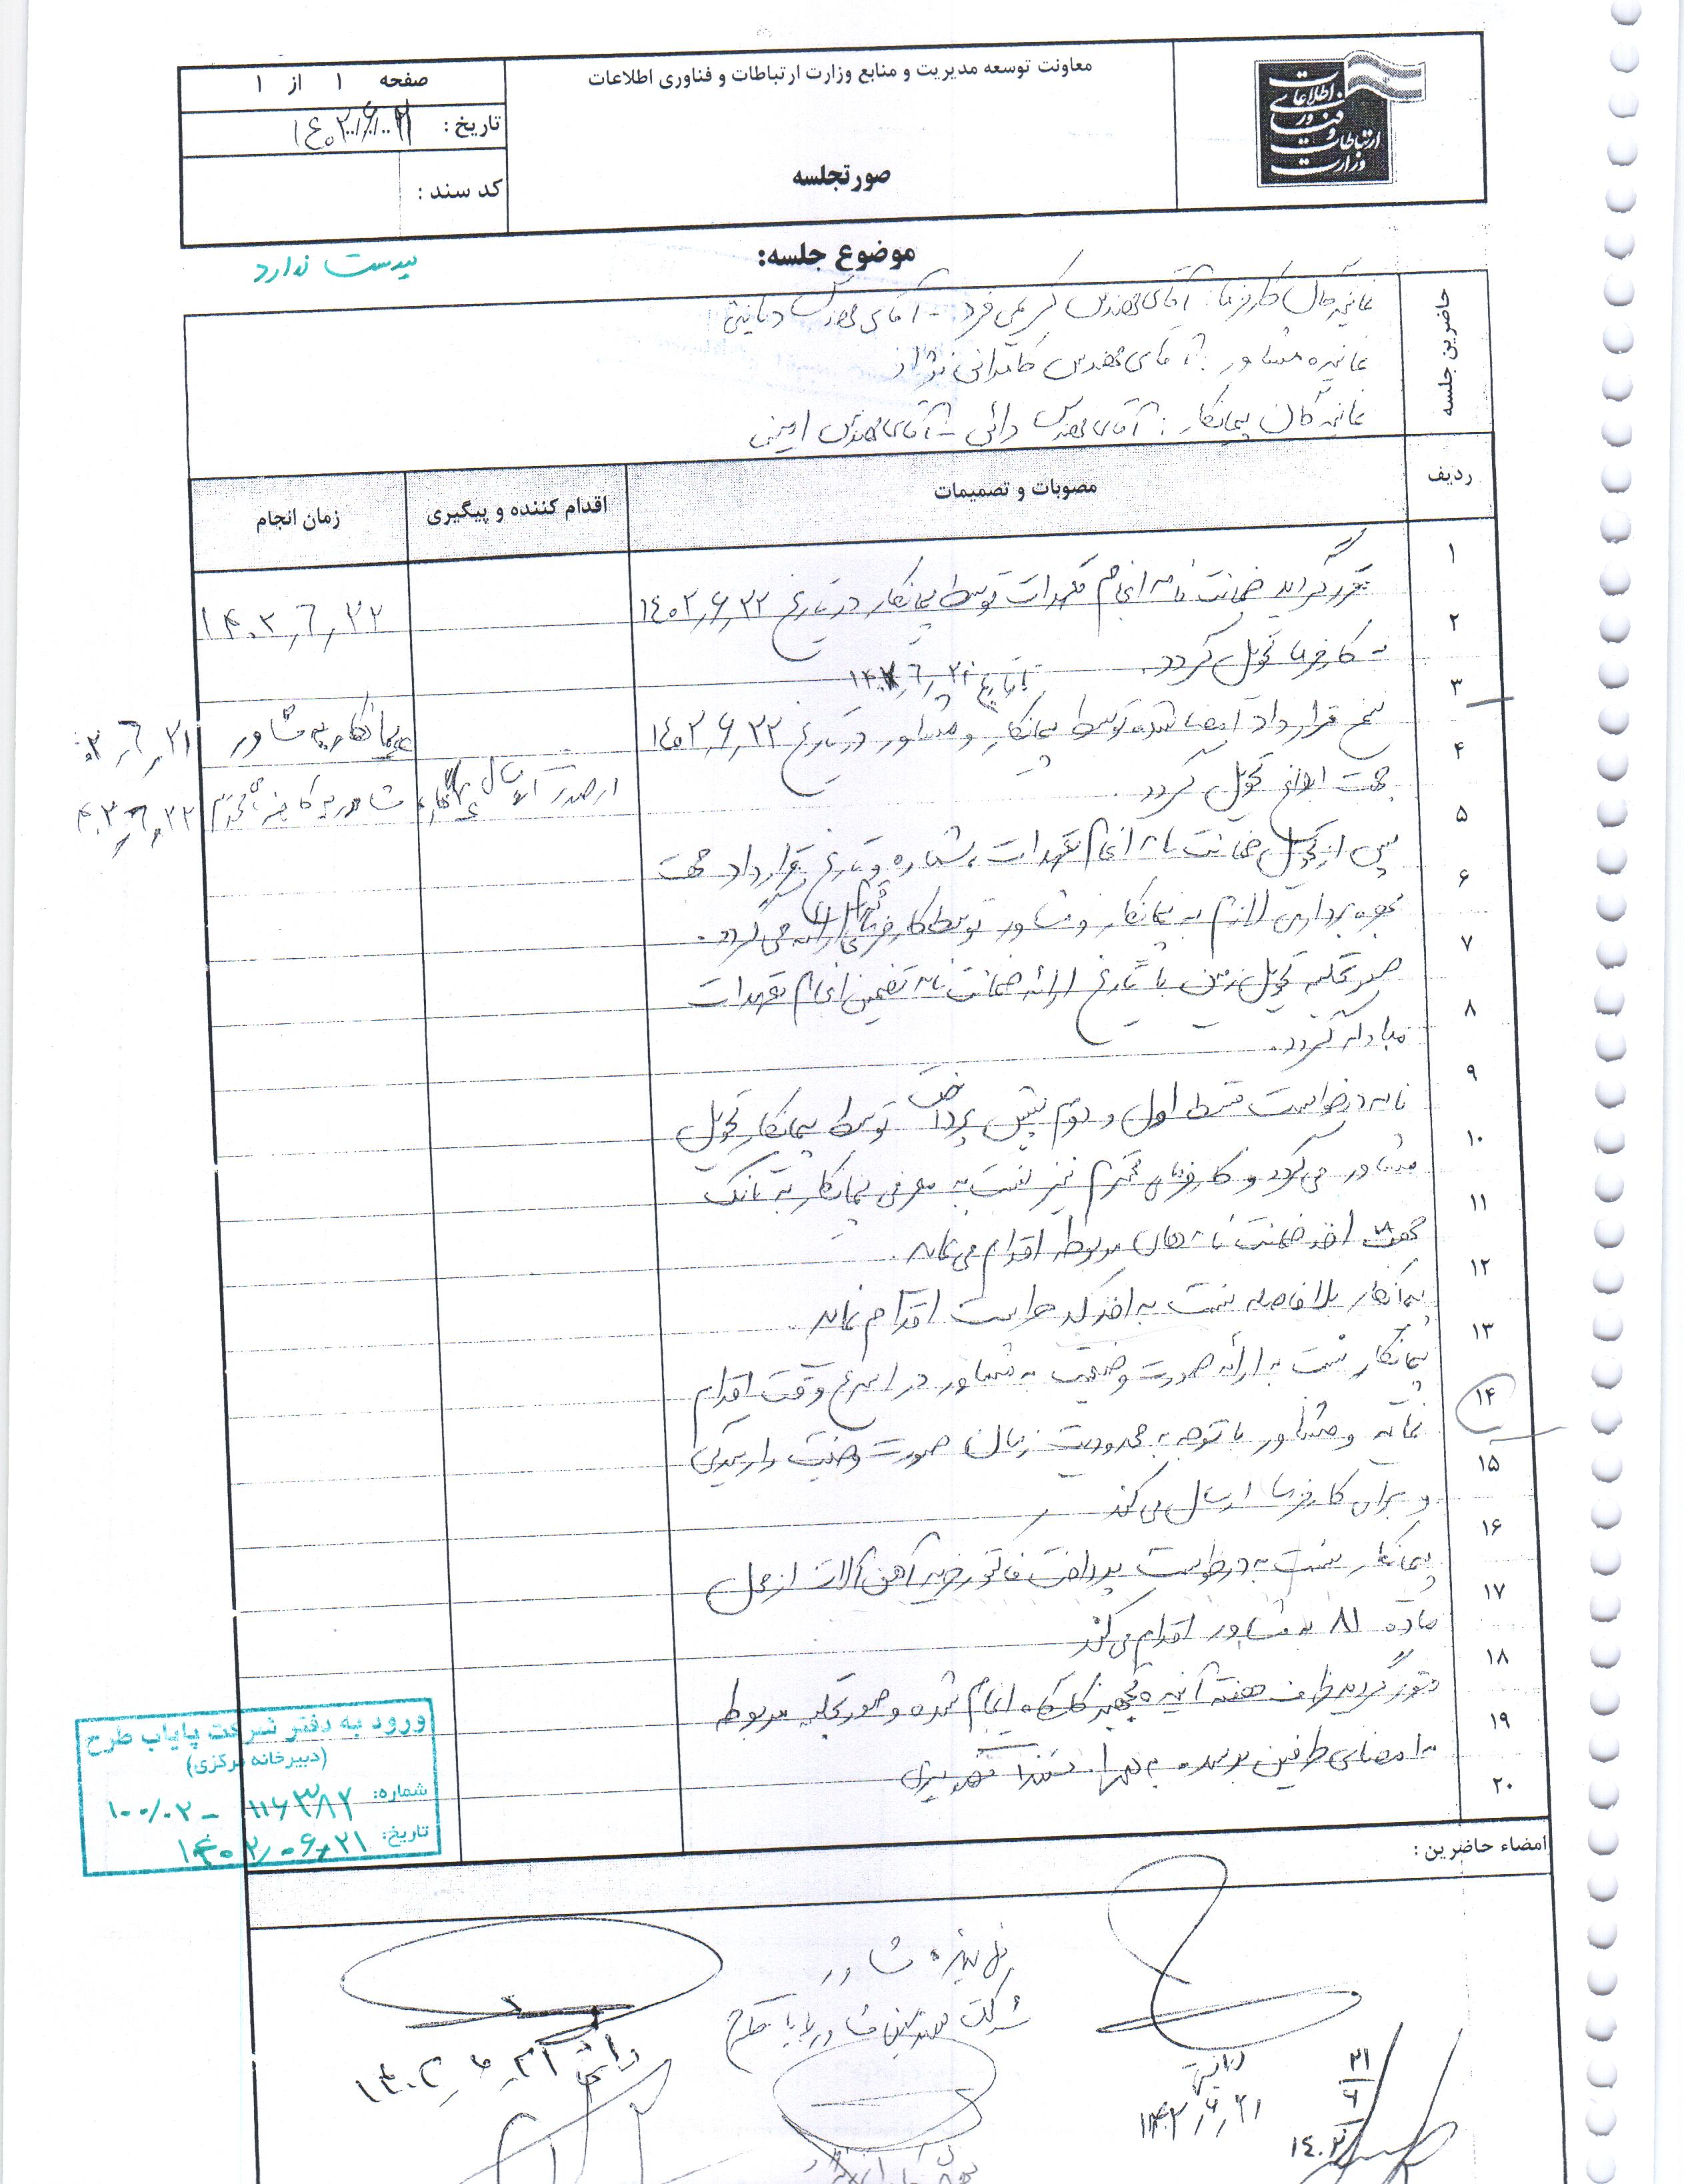 وزارت ارتباطات و فناوری اطلاعات
معاونت توسعه مدیریت و منابع وزارت ارتباطات و فناوری اطلاعات
صورتجلسه
صفحه ۱ از ۱
تاریخ : ۱۴۰۲/۶/۲۱
کد سند :
موضوع جلسه:
پیوست ندارد
حاضرین جلسه
نمایندگان کارفرما : آقای مهندس کریمی فرد - آقای مهندس
نماینده مشاور : آقای مهندس کامرانی نژاد
نمایندگان پیمانکار : آقای مهندس دائی - آقای مهندس امینی
ردیف
مصوبات و تصمیمات
اقدام کننده و پیگیری
زمان انجام
۱
مقرر گردید ضمانت نامه انجام تعهدات توسط پیمانکار در تاریخ ۱۴۰۲/۶/۲۲
۱۴۰۲/۶/۲۲
۲
به کارفرما تحویل گردد.
۳
نسخ قرارداد امضا شده توسط پیمانکار و مشاور در تاریخ ۱۴۰۲/۶/۲۲
پیمانکار به مشاور
۰۲/۶/۲۱
۴
جهت ابلاغ تحویل گردد.
۵
پس از تحویل ضمانت نامه انجام تعهدات، شماره و تاریخ قرارداد جهت
۶
بهره برداری لازم به پیمانکار و مشاور توسط کارفرمای ارائه می گردد.
۷
صورتجلسه تحویل زمین با تاریخ ارائه ضمانت نامه تضمین انجام تعهدات
۸
مبادله گردد.
۹
نامه درخواست قسط اول و دوم پیش پرداخت توسط پیمانکار تحویل
۱۰
مشاور می گردد و کارفرمای محترم نیز نسبت به معرفی پیمانکار به بانک
۱۱
جهت اخذ ضمانت نامه های مربوطه اقدام می نماید.
۱۲
پیمانکار بلافاصله نسبت به اخذ کد حراست اقدام نماید.
۱۳
پیمانکار نسبت به ارائه صورت وضعیت به مشاور در اسرع وقت اقدام
۱۴
نماید و مشاور با توجه به محدودیت زمان صورت وضعیت را رسیدگی
۱۵
و برای کارفرما ارسال می کند
۱۶
پیمانکار نسبت به درخواست پرداخت فاکتور خرید آهن آلات از محل
۱۷
ماده ۸۱ به مشاور اقدام می کند
۱۸
مقرر گردید ظرف هفته آینده تجهیز کارگاه انجام شده و صورتجلسه مربوطه
۱۹
به امضای طرفین برسد. به همراه مستندات تصویری
۲۰
ورود به دفتر شرکت پایاب طرح
(دبیرخانه مرکزی)
شماره: ۱۰۰/۰۲ - ۱۱۶۳۸۲
تاریخ: ۱۴۰۲/۰۶/۲۱
امضاء حاضرین :
نماینده مشاور
شرکت مهندسین مشاور پایاب طرح
۱۴۰۲/۶/۲۱
دائی ۱۴۰۲/۶/۲۱
۲۱/۶/۱۴۰۲